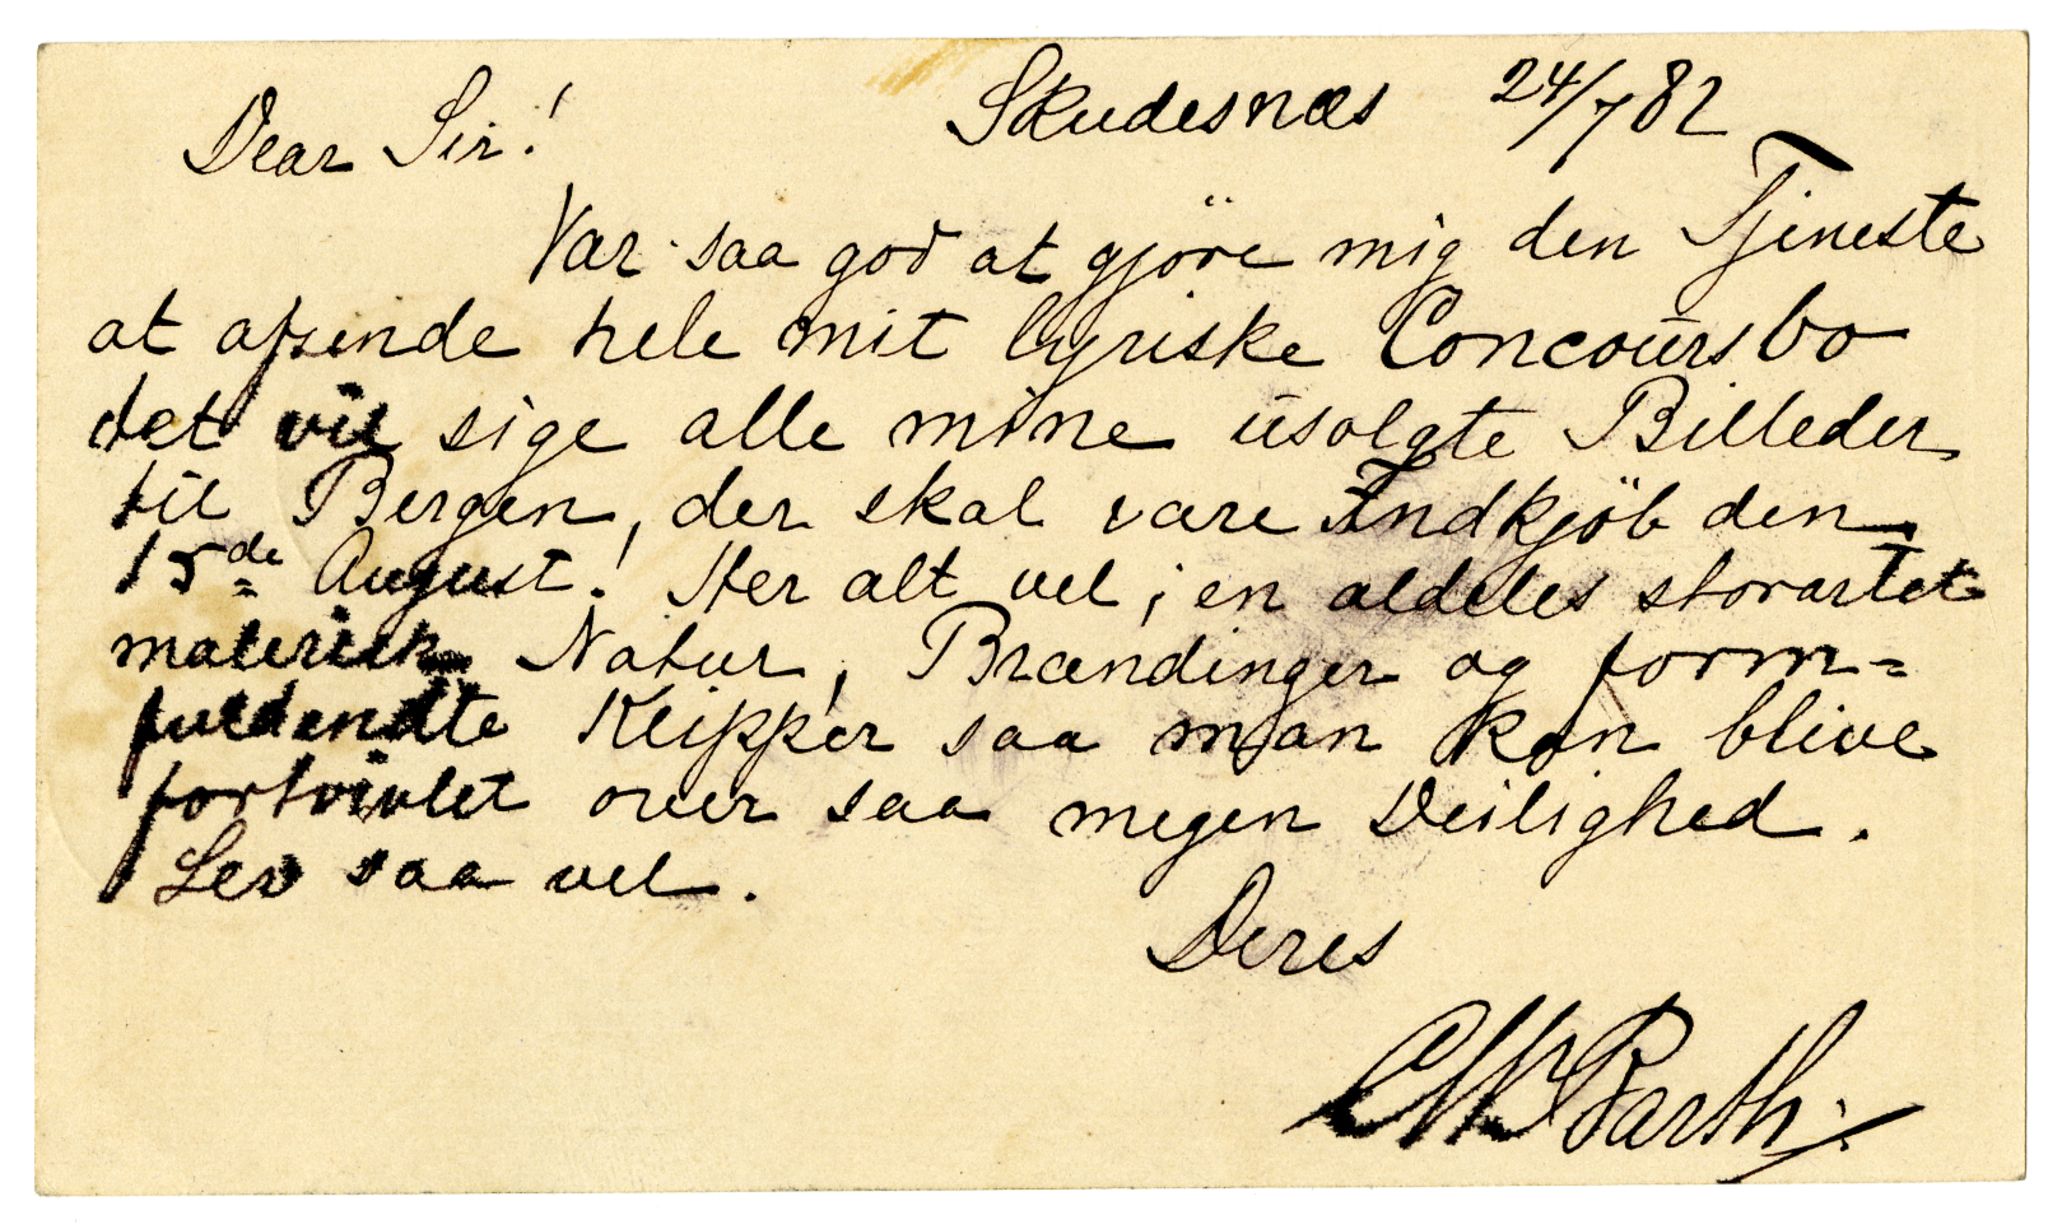 Skudesnæs 24/7 82
Dear Sir!
Var saa god at gjöre mig den Tjeneste
at afsende hele mit lyriske Concoursbo
det vil sige alle mine usolgte Billeder
til Bergen, der skal være Indkjöb den
15de August! Her alt vel; en aldeles storartet
malerisk Natur, Brændinger og form=
fuldendte Klipper saa man kan blive
fortvivlet over saa megen Deilighed.
Lev saa vel.
Deres
CW Barth